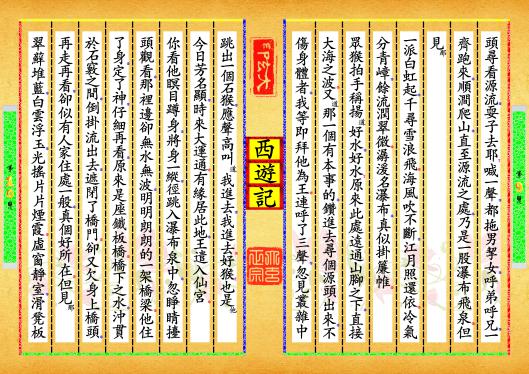 第9頁
頭尋看源流耍子去耶喊一聲都拖男挈女呼弟呼兄一
齊跑來順澗爬山直至源流之處乃是一股瀑布飛泉但
見那
一派白虹起千尋雪浪飛海風吹不斷江月照還依冷氣
分青嶂餘流潤翠微潺湲名瀑布真似掛簾帷
眾猴拍手稱揚道好水好水原來此處遠通山腳之下直接
大海之波又道那一個有本事的鑽進去尋個源頭出來不
傷身體者我等即拜他為王連呼了三聲忽見叢雜中
西遊記
跳出一個石猴應聲高叫道我進去我進去好猴也是他
今日芳名顯時來大運通有緣居此地王遣入仙宮
你看他瞑目蹲身將身一縱徑跳入瀑布泉中忽睜睛擡
頭觀看那裡邊卻無水無波明明朗朗的一架橋梁他住
了身定了神仔細再看原來是座鐵板橋橋下之水沖貫
於石竅之間倒掛流出去遮閉了橋門卻又欠身上橋頭
再走再看卻似有人家住處一般真個好所在但見那
翠蘚堆藍白雲浮玉光搖片片煙霞虛窗靜室滑凳板
第10頁